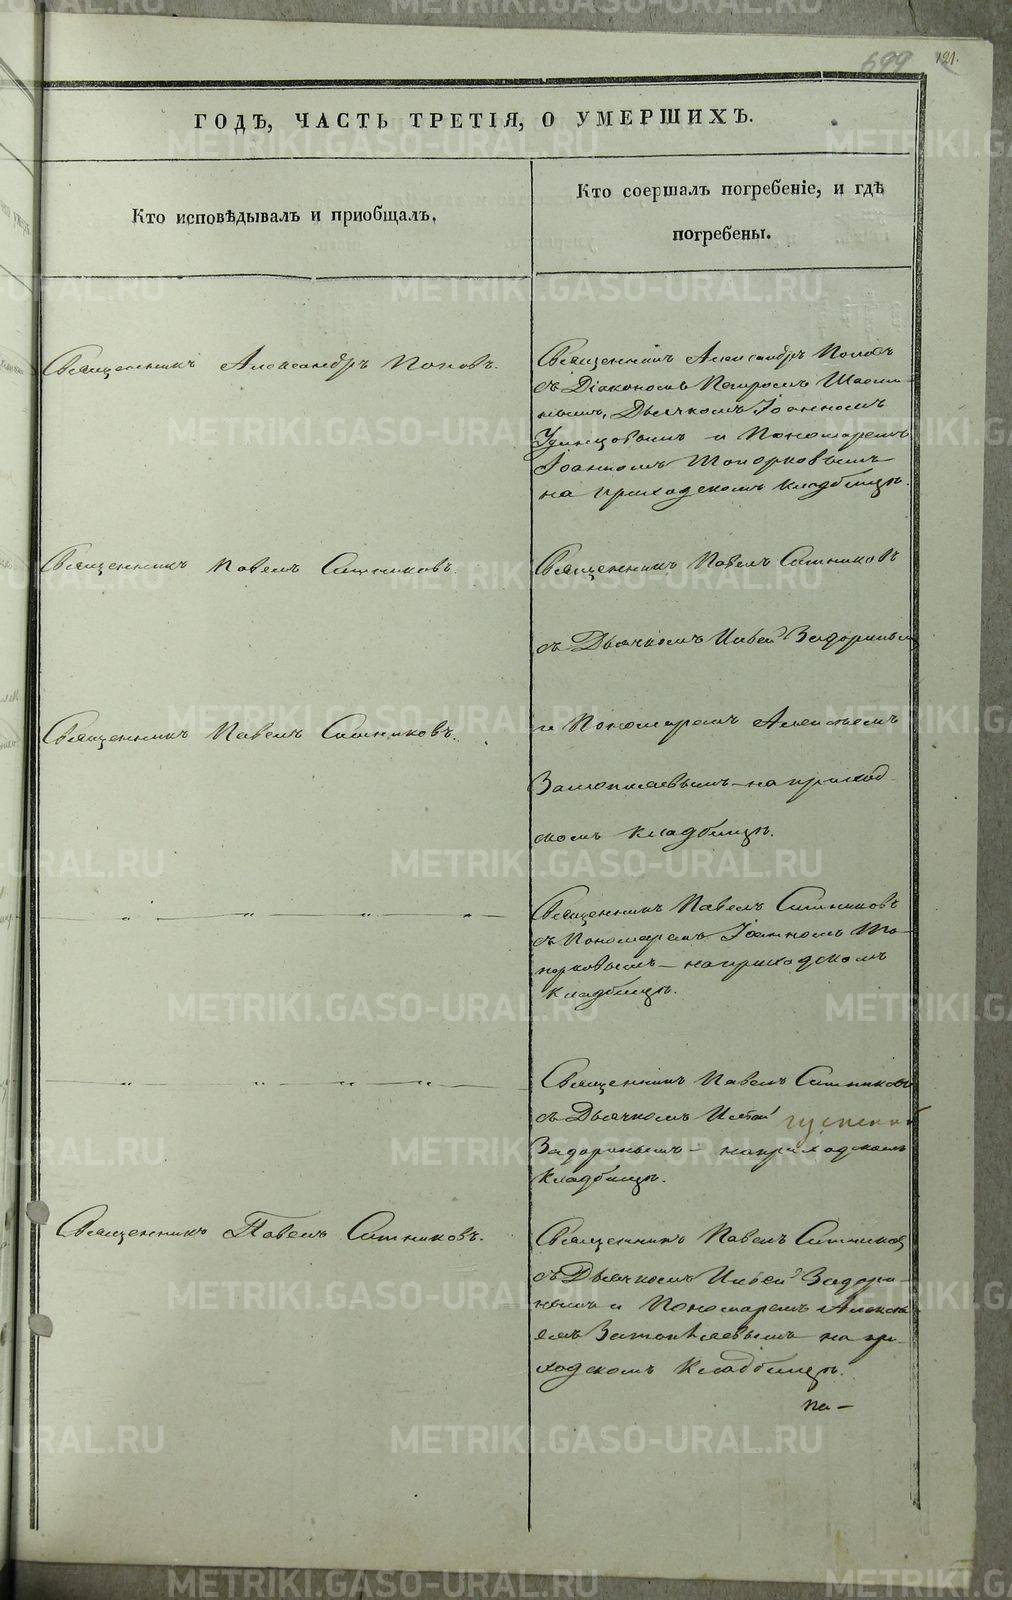 699 121.
ГОДѢ, ЧАСТЬ ТРЕТІЯ, О УМЕРШИХЪ.
Кто исповѣдывалъ и приобщалъ.
Кто соершалъ погребеніе, и гдѣ
погребены.
Священникъ Александръ Поповъ.
Священникъ Александръ Поповъ
съ Діакономъ Петромъ
Дьячкомъ Іоанномъ
и Пономаремъ
Іоанномъ Топорковымъ
на приходскомъ кладбищѣ.
Священникъ Павелъ Ситниковъ.
Священникъ Павелъ Ситниковъ
съ Дьячкомъ Задоринымъ
Священникъ Павелъ Ситниковъ.
и Пономаремъ Алексѣемъ
на приход
скомъ кладбищѣ.
Священникъ Павелъ Ситниковъ
съ Пономаремъ Іоанномъ То-
порковымъ – на приходскомъ
кладбищѣ.
Священникъ Павелъ Ситниковъ
съ Дьячкомъ
Задоринымъ – на приходскомъ
кладбищѣ.
Священникъ Павелъ Ситниковъ.
Священникъ Павелъ Ситниковъ
съ Дьячкомъ Задори-
нымъ и Пономаремъ Алексѣ
емъ на при-
ходскомъ кладбищѣ.
на–
METRIKI.GASO-URAL.RU